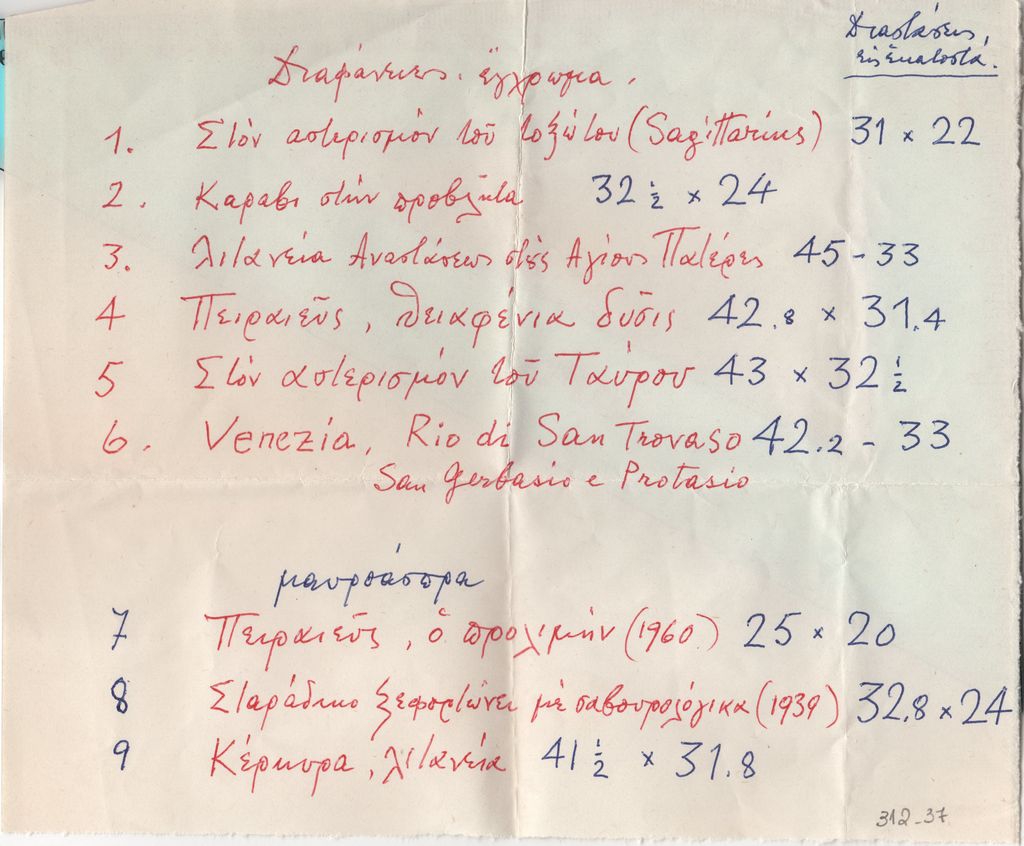 Διαστάσεις,
εἰς ἑκατοστά.
Διαφάνειες. ἔγχρωμα.
1. Στόν αστερισμόν τοῦ τοξώτου (Sagittarius) 31 × 22
2. Καραβι στήν προβλῆτα 32 ½ × 24
3. Λιτανεία Αναστάσεως στοὺς Αγίους Πατέρες 45 - 33
4 Πειραιεῦς, θειαφένια δῦσις 42.8 × 31.4
5 Στόν αστερισμόν τοῦ Ταύρου 43 × 32 ½
6. Venezia, Rio di San Trovaso 42.2 - 33
San Gerbasio e Protasio
μαυρσάσπρα
7 Πειραιεῦς, ὁ προλιμήν (1960) 25 × 20
8 Σταράδικο ξεφορτώνει μέ σαβουρολόγικα (1939) 32.8 × 24
9 Κέρκυρα, λιτανεία 41 ½ × 31.8
312-37